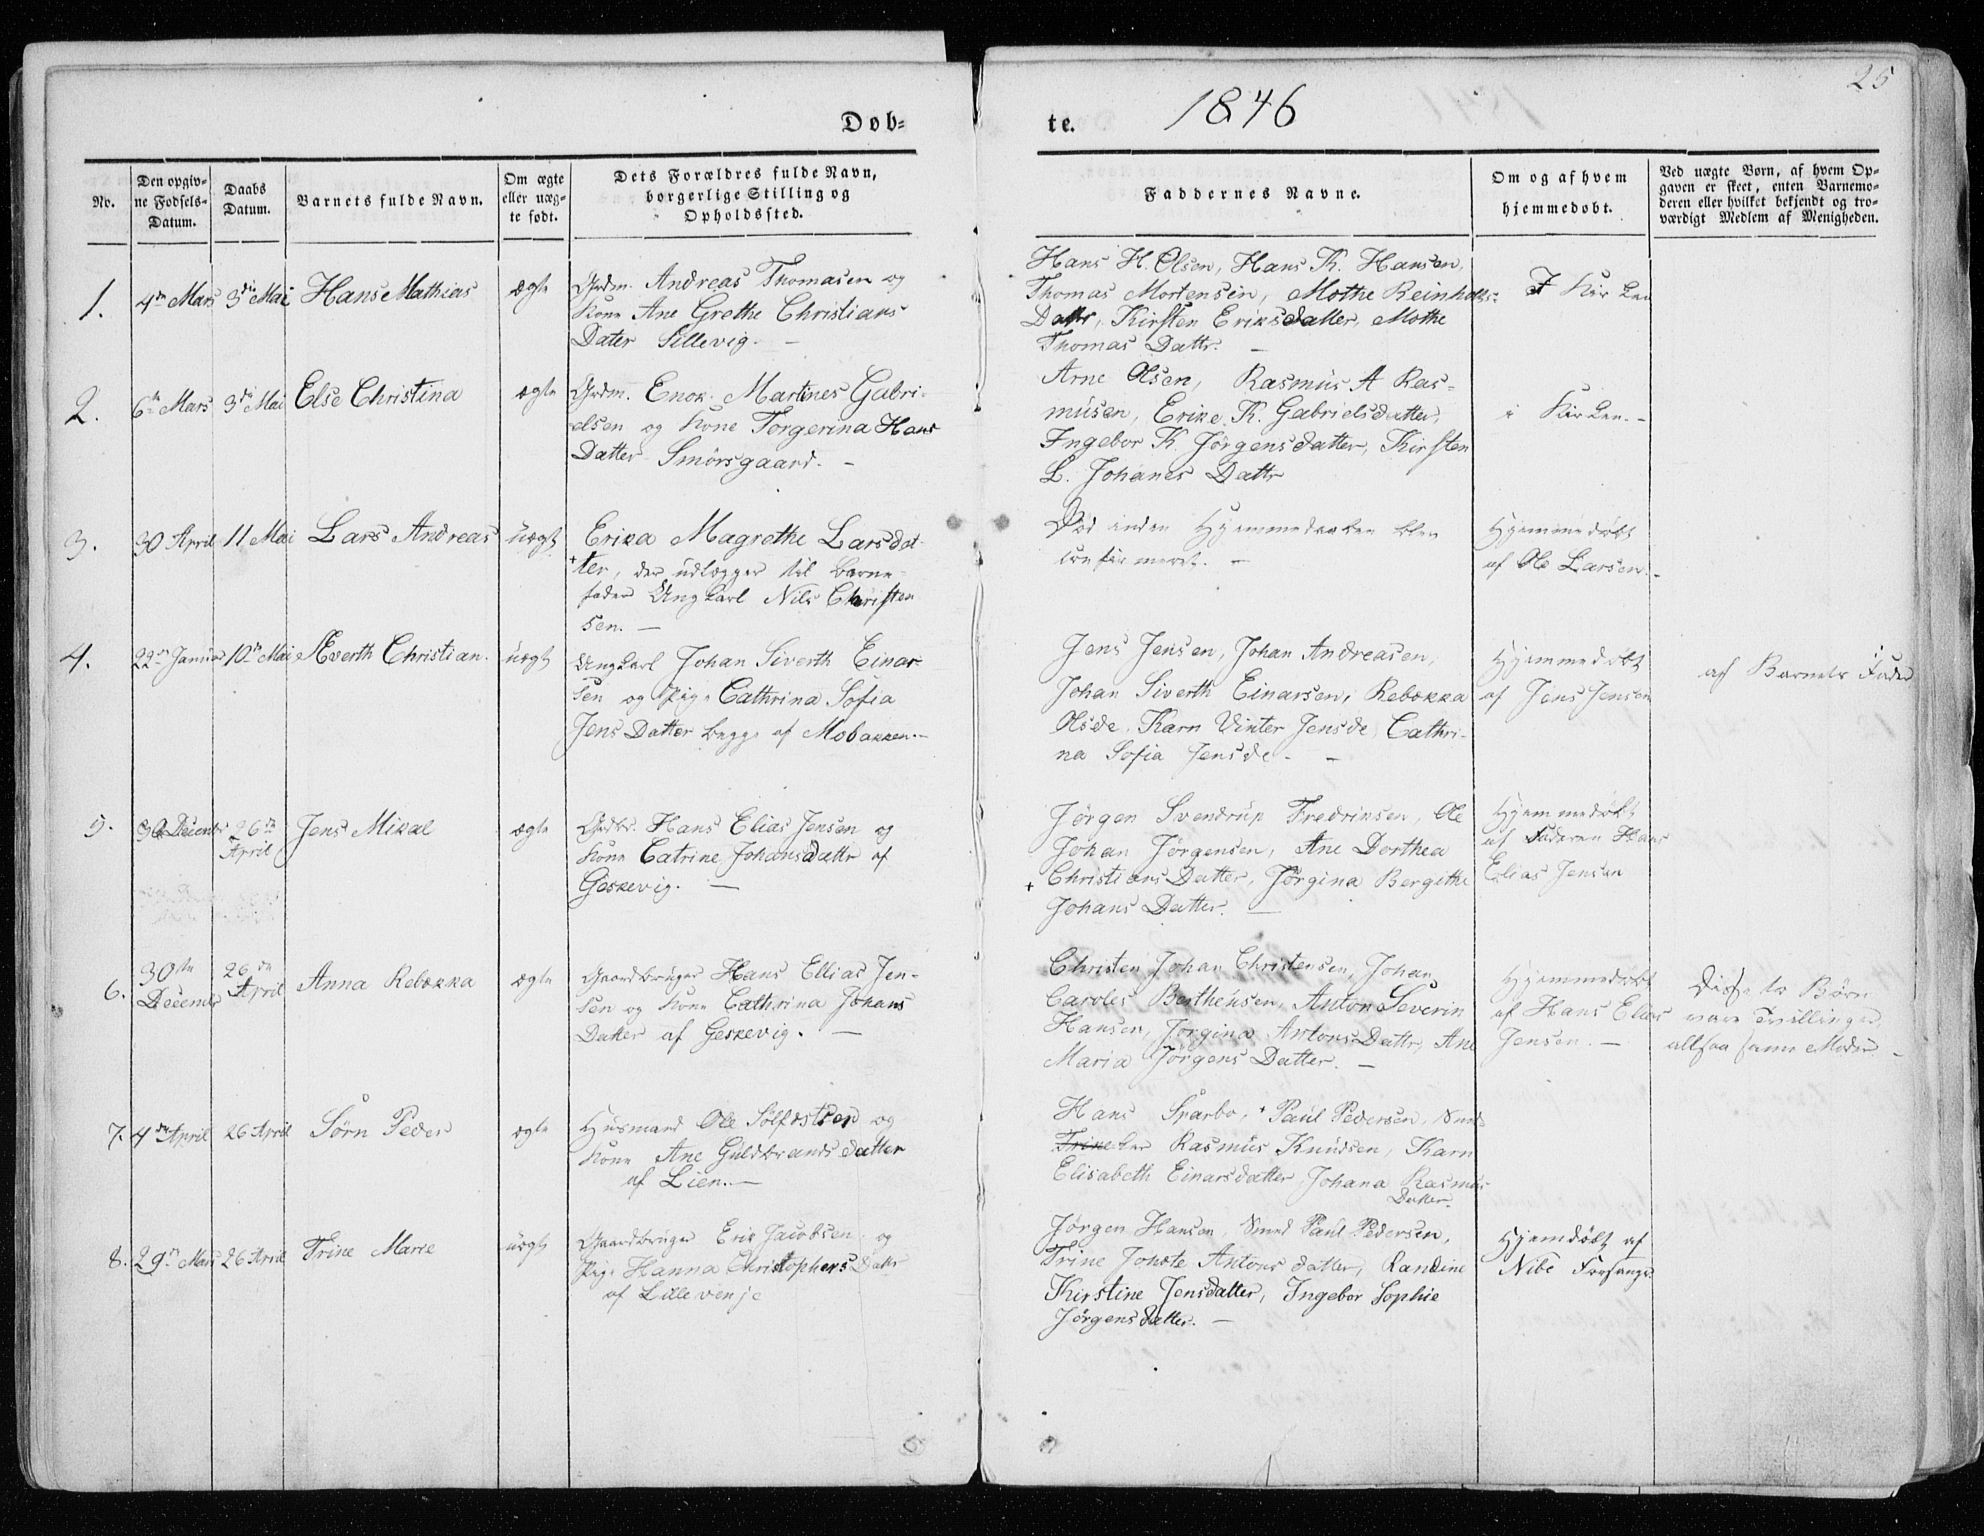 25
Døb-
te.
1846
No.
Den opgiv-
ne Fødsels-
Datum.
Daabs
Datum.
Barnets fulde Navn.
Om ægte
eller uæg-
te født.
Dets Forældres fulde Navn,
borgerlige Stilling og
Opholdssted.
Faddernes Navne.
Om og af hvem
hjemmedøbt.
Ved uægte Børn, af hvem Op-
gaven er skeet, enten Barnemo-
deren eller hvilket bekjendt og tro-
værdigt Medlem af Menigheden.
1.
4de Mars
3die Mai
Hans Mathias
ægte
Grdm. Andreas Thomasen og
Kone Ane Grethe Christians
Datter Sillevig. -
Hans H. Olsen, Hans K. Hansen,
Thomas Mortensen, Mothe Reinholts-
Dattr, Kirsten Eriksdatter, Mothe
Thomas Dattr. -
I Kirken
2.
6te Mars
3die Mai
Else Christina
ægte
Grdm. Enok Martines Gabri-
elsen og Kone Torgerina Hans
Datter Smörsgaard. -
Arne Olsen, Rasmus A Ras-
musen, Erike K. Gabrielsdatter,
Ingebor K. Jörgensdatter, Kirsten
L. Johanes Dattr
i Kirken. -
3.
30 April
11 Mai
Lars Andreas
uægt
Erika Magrethe Larsdat-
ter, der udlægger til Barne-
fader Ungkarl Nils Christen
sen. -
Död inden Hjemmedaaben blev
confirmeret. -
Hjemmedöbt
af Ole Larsen. -
4.
22de Januar
10de Mai
Æverth Christian.
uægt
Ungkarl Johan Siverth Einar
sen og Pige Cathrina Sofia
Jens Datter begge af Mobakken. -
Jens Jensen, Johan Andreasen,
Johan Siverth Einarsen, Rebekka
Olsde. Karn Vinter Jensde, Cathri-
na Sofia Jensde. -
Hjemmedöbt
af Jens Jensen
af Barnets Fader
5.
30 Decembr
26de
April
Jens Mikal
ægte
Grdbr. Hans Elias Jensen og
Kone Catrine Johansdattr af
Geskevig. -
Jörgen Svendrup Fredriksen, Ole
Johan Jörgensen, Ane Dorthea
+ Christians Datter, Jörgina Bergithe
Johans Datter. -
Hjemmedöbt
af Faderen Hans
Elias Jensen
6.
30te
December
26de
April
Anna Rebekka
ægte
Gaardbruger Hans Ellias Jen-
sen og Kone Cathrina Johans
Datter af Geskevig. -
Christen Johan Christensen, Johan
Caroles Bertheusen, Anton Severin
Hansen, Jörgina Antons Dattr, Ane
Maria Jörgens Datter. -
Hjemmedöbt
af Hans Elias
Jensen. -
Disse to Börn
vare Tvillinger
altsaa samme Moder -
7.
4de April
26 April
Sörn Peder
ægte
Husmand Ole og
Kone Ane Guldbrands datter
af Lien. -
Hans Sparbo, Paul Pedersen, Smed
Rasmus Knudsen, Karn
Elisabeth Einarsdatter Johana Rasmus
Datter.
8.
29de Mars
26 April
Trine Marie
uægt
Gaardbruger Erik Jacobsen og
Pige Hanna Christophers Dattr
af Lillevenje
Jörgen Hansen, Smed Paul Pedersen,
Trine Johste Antons datter, Randine
Kirstine Jensdatter, Ingebor Sophie
Jörgensdatter. -
Hjemdöbt af
Nibe